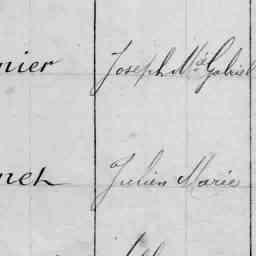 nier Joseph Mie Gabriel
nech Julien Marie